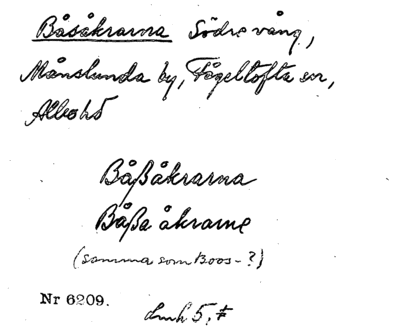 Båsåkrarna Södre vång,
Månslunda by, Fågeltofta sn,
Albo hd
Båßåkrarna
Båßa åkrarne
(samma som Boos-?)
Nr 6209.